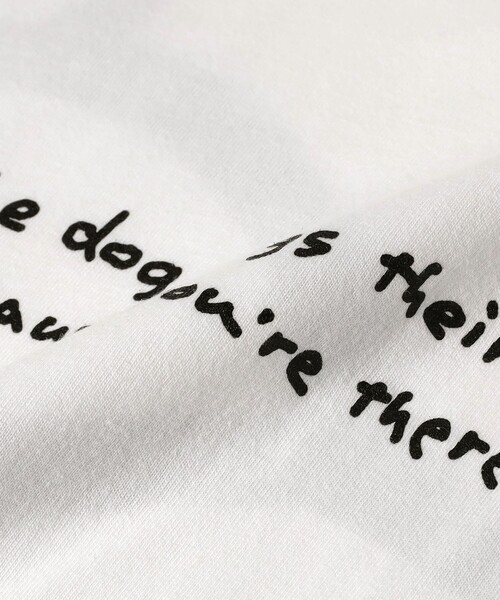 e dog s their
au u're there